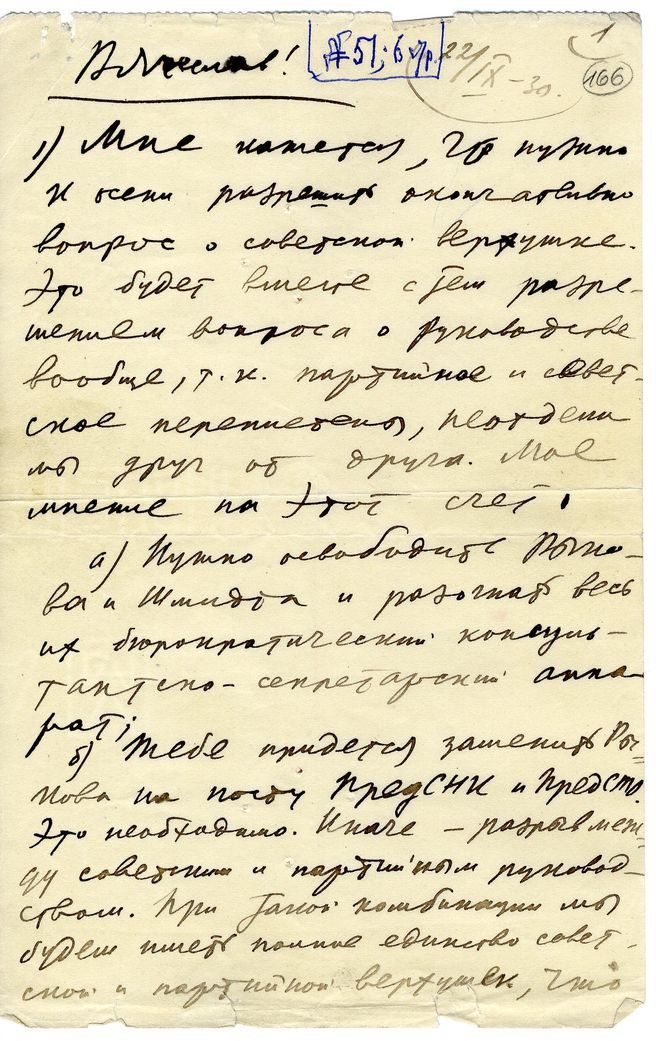 Вячеслав!
22/IX–30.
1
166
1) Мне кажется, что нужно
к осени разрешить окончательно
вопрос о советской верхушке.
Это будет вместе с тем разре-
шением вопроса о руководстве
вообще, т.к. партийное и совет-
ское переплетены, неотдели
мы друг от друга. Мое
мнение на этот счет:
а) Нужно освободить Рыко-
ва и Шмидта и разогнать весь
их бюрократический консуль-
тантско-секретарский аппа-
рат;
б) Тебе придется заменить Ры-
кова на посту ПредСНК и ПредСТО.
Это необходимо. Иначе – разрыв меж-
ду советским и партийным руковод-
ством. При такой комбинации мы
будем иметь полное единство совет-
ской и партийной верхушек, что